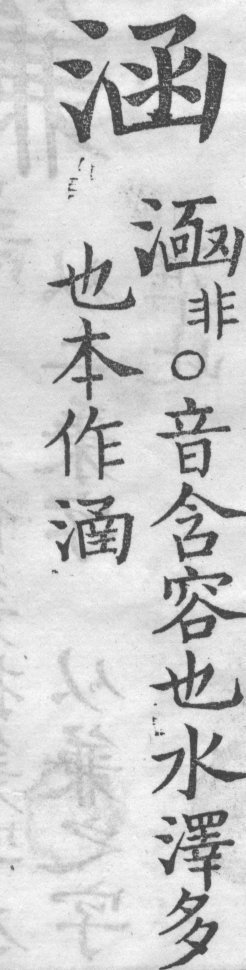 涵
非○音含容也水澤多
也本作㴠